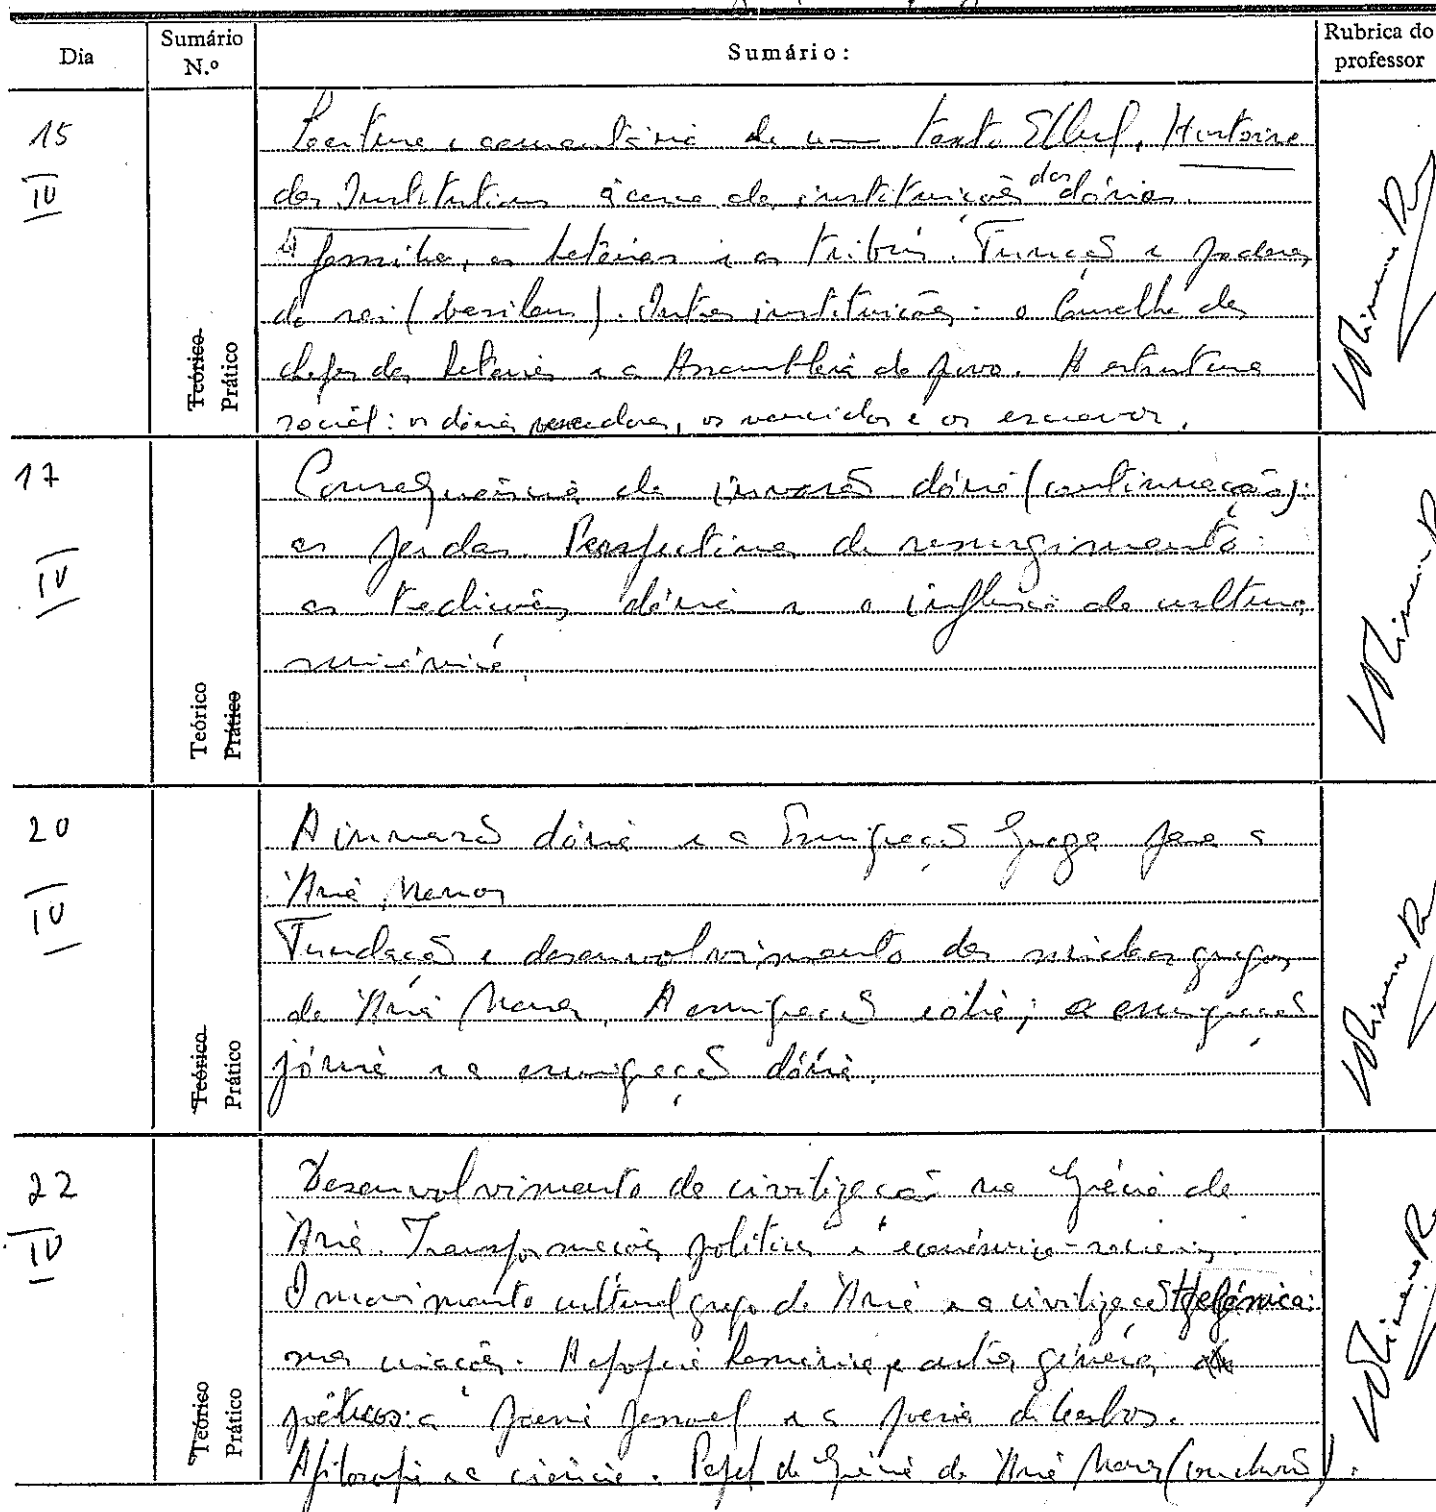 Dia
Sumário
N.º
Sumário:
Rubrica do
professor
15
IV
Teórico
Prático
Leitura e comentário de um texto Ellul, Histoire
des Institutions àcerca das instituições dos dórios.
A família, as hetérias e as tribus. Funções e poderes
do rei (basileus). Outras instituições: o Conselho dos
chefes das hetérias e a Assembleia do povo. A estrutura
social: os dórios vencedores, os vencidos e os escravos.
17
IV
Teórico
Prático
Consequências da invasão dória (continuação):
as perdas. Perspectivas de ressurgimento:
as tradições dórias e a influência da cultura
micénica
20
IV
Teórico
Prático
A invasão dória e a Emigração Grega para a
Ásia Menor
Fundação e desenvolvimento dos núcleos gregos
da Ásia Menor. A emigração eólia; a emigração
jónia e a emigração dória.
22
IV
Teórico
Prático
Desenvolvimento da civilização na Grécia da
Ásia. Transformações políticas e económico-sociais.
O movimento cultural grego da Ásia e a civilização Helénica:
suas criações. A epopeia homérica e outros géneros
poéticos: a poesia pessoal e a poesia de Lesbos.
A filosofia e a ciência. Papel da Grécia da Ásia Menor (conclusão).